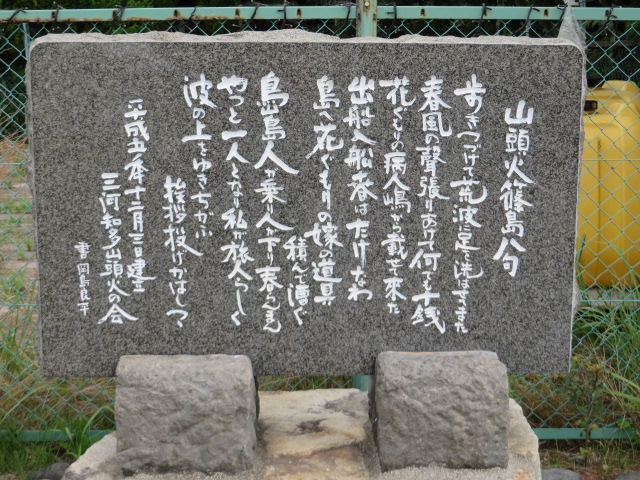 山頭火篠島八句
歩きつづけて荒波に足を洗はせてまた
春風の聲張りあげて何でも十銭
花ぐもりの病人嶋から載せて来た
出船入船春はたけなわ
島へ花ぐもりの嫁の道具
積んで漕ぐ
島島人が乗り人が下り春らんまん
やつと一人となり私が旅人らしく
波の上をゆきちがふ
挨拶投げかはしつつ
平成五年十二月三日建之
三河知多山頭火の会
書 岡島良平